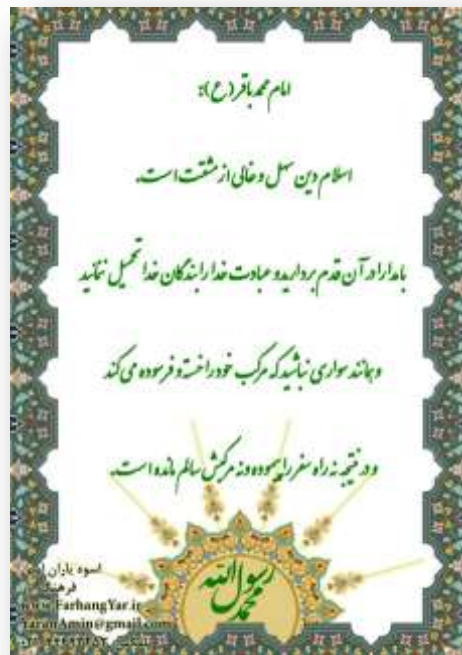 امام محمد باقر (ع):
اسلام دین سهل و خالی از مشقت است.
با مدارا در آن قدم بردارید و عبادت خدا را بندگان خدا تحمیل ننمائید
و همانند سواری نباشید که مرکب خود را خسته و فرسوده می کند
و در نتیجه نه راه سفر را پیموده و نه مرکبش سالم مانده است.
محمد رسول الله
اسوه یاران
فرهنگ
www.FarhangYar.ir
YaranAmin@gmail.com